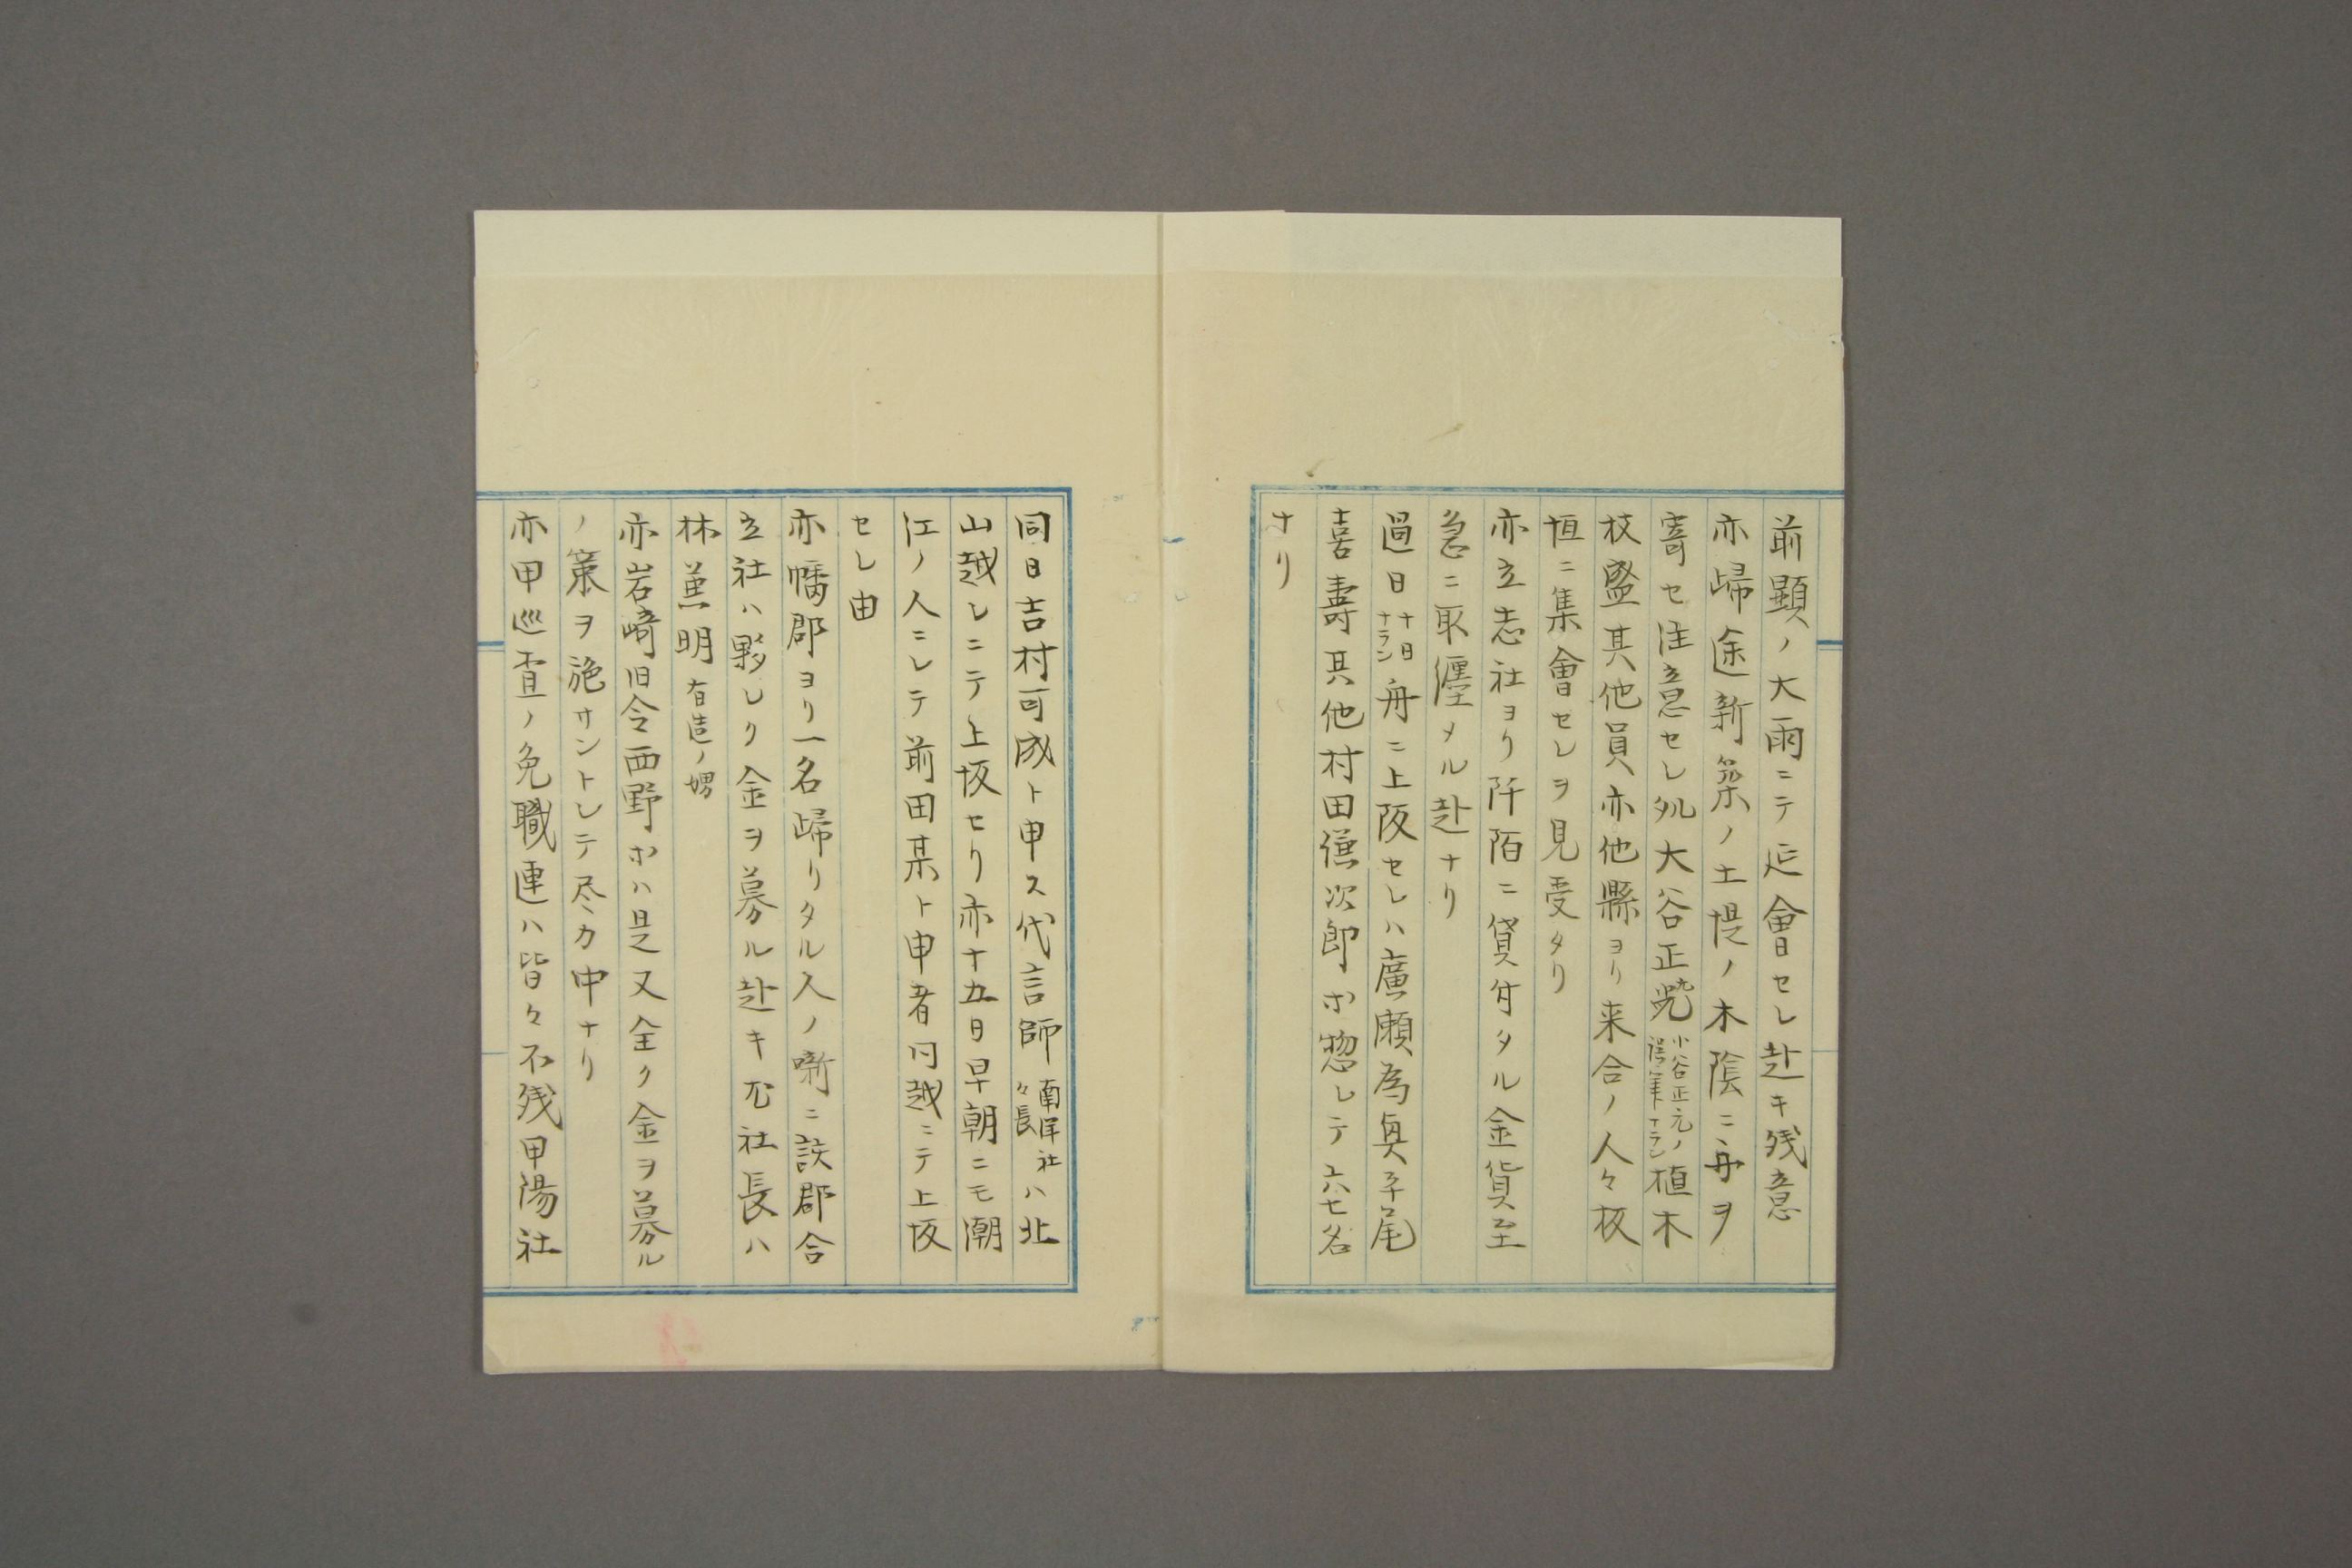 前顕ノ大雨ニテ延會セシ赴キ残意
亦歸途新築ノ土堤ノ木陰ニ舟ヲ
寄セ注意セシ処大谷正兠小谷正元ノ誤筆ナラン植木
枝盛其他員亦他縣ヨリ来合ノ人々板
垣ニ集會セシヲ見受タリ
亦立志社ヨリ阡陌ニ貸付タル金貨至
急ニ取纒メル赴ナリ
過日十日ナラン舟ニ上阪セシハ廣瀬為興子尾
喜壽其他村田謙次郎ホ惣シテ六七名
ナリ
同日吉村可成ト申ス代言師南洋社々長ハ北
山越シニテ上坂セリ亦十五日早朝ニモ潮
江ノ人ニシテ前田某ト申者同越ニテ上坂
セシ由
亦幡郡ヨリ一名歸リタル人ノ噺ニ該郡合
立社ハ夥シク金ヲ募ル赴キ尤社長ハ
林兼明有造ノ甥
亦岩﨑旧令西野ホハ是又全ク金ヲ募ル
ノ策ヲ施サントシテ尽力中ナリ
亦甲巡査ノ免職連ハ皆々不残甲陽社